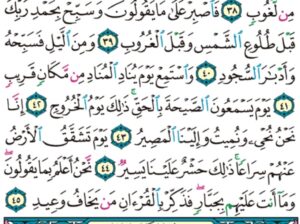 مِن لُّغُوبٍ ٣٨ فَٱصْبِرْ عَلَىٰ مَا يَقُولُونَ وَسَبِّحْ بِحَمْدِ رَبِّكَ
قَبْلَ طُلُوعِ ٱلشَّمْسِ وَقَبْلَ ٱلْغُرُوبِ ٣٩ وَمِنَ ٱلَّيْلِ فَسَبِّحْهُ
وَأَدْبَٰرَ ٱلسُّجُودِ ٤٠ وَٱسْتَمِعْ يَوْمَ يُنَادِ ٱلْمُنَادِ مِن مَّكَانٍ قَرِيبٍ
٤١ يَوْمَ يَسْمَعُونَ ٱلصَّيْحَةَ بِٱلْحَقِّ ۚ ذَٰلِكَ يَوْمُ ٱلْخُرُوجِ ٤٢ إِنَّا
نَحْنُ نُحْىِۦ وَنُمِيتُ وَإِلَيْنَا ٱلْمَصِيرُ ٤٣ يَوْمَ تَشَقَّقُ ٱلْأَرْضُ
عَنْهُمْ سِرَاعًا ۚ ذَٰلِكَ حَشْرٌ عَلَيْنَا يَسِيرٌ ٤٤ نَّحْنُ أَعْلَمُ بِمَا يَقُولُونَ ۖ
وَمَآ أَنتَ عَلَيْهِم بِجَبَّارٍ ۖ فَذَكِّرْ بِٱلْقُرْءَانِ مَن يَخَافُ وَعِيدِ ٤٥